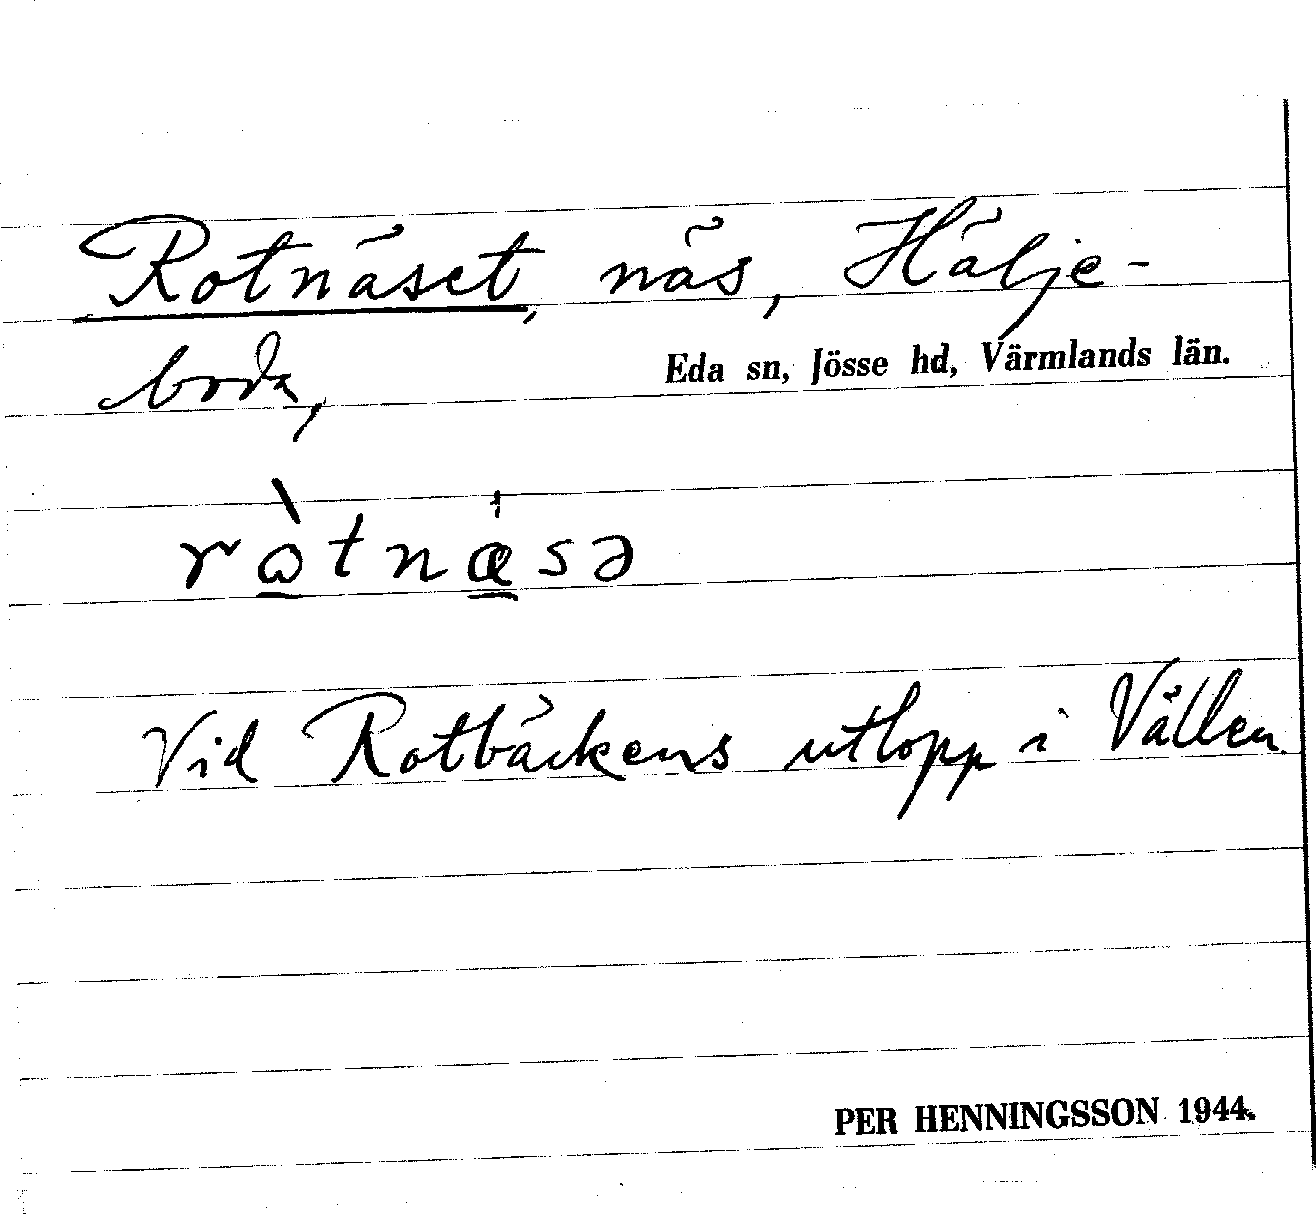 Rotnäset, näs, Hälje-
boda,
Eda sn, Jösse hd, Värmlands län.
rὼtnæ̍sə
Vid Rotbäckens utlopp i Vällen.
PER HENNINGSSON 1944.